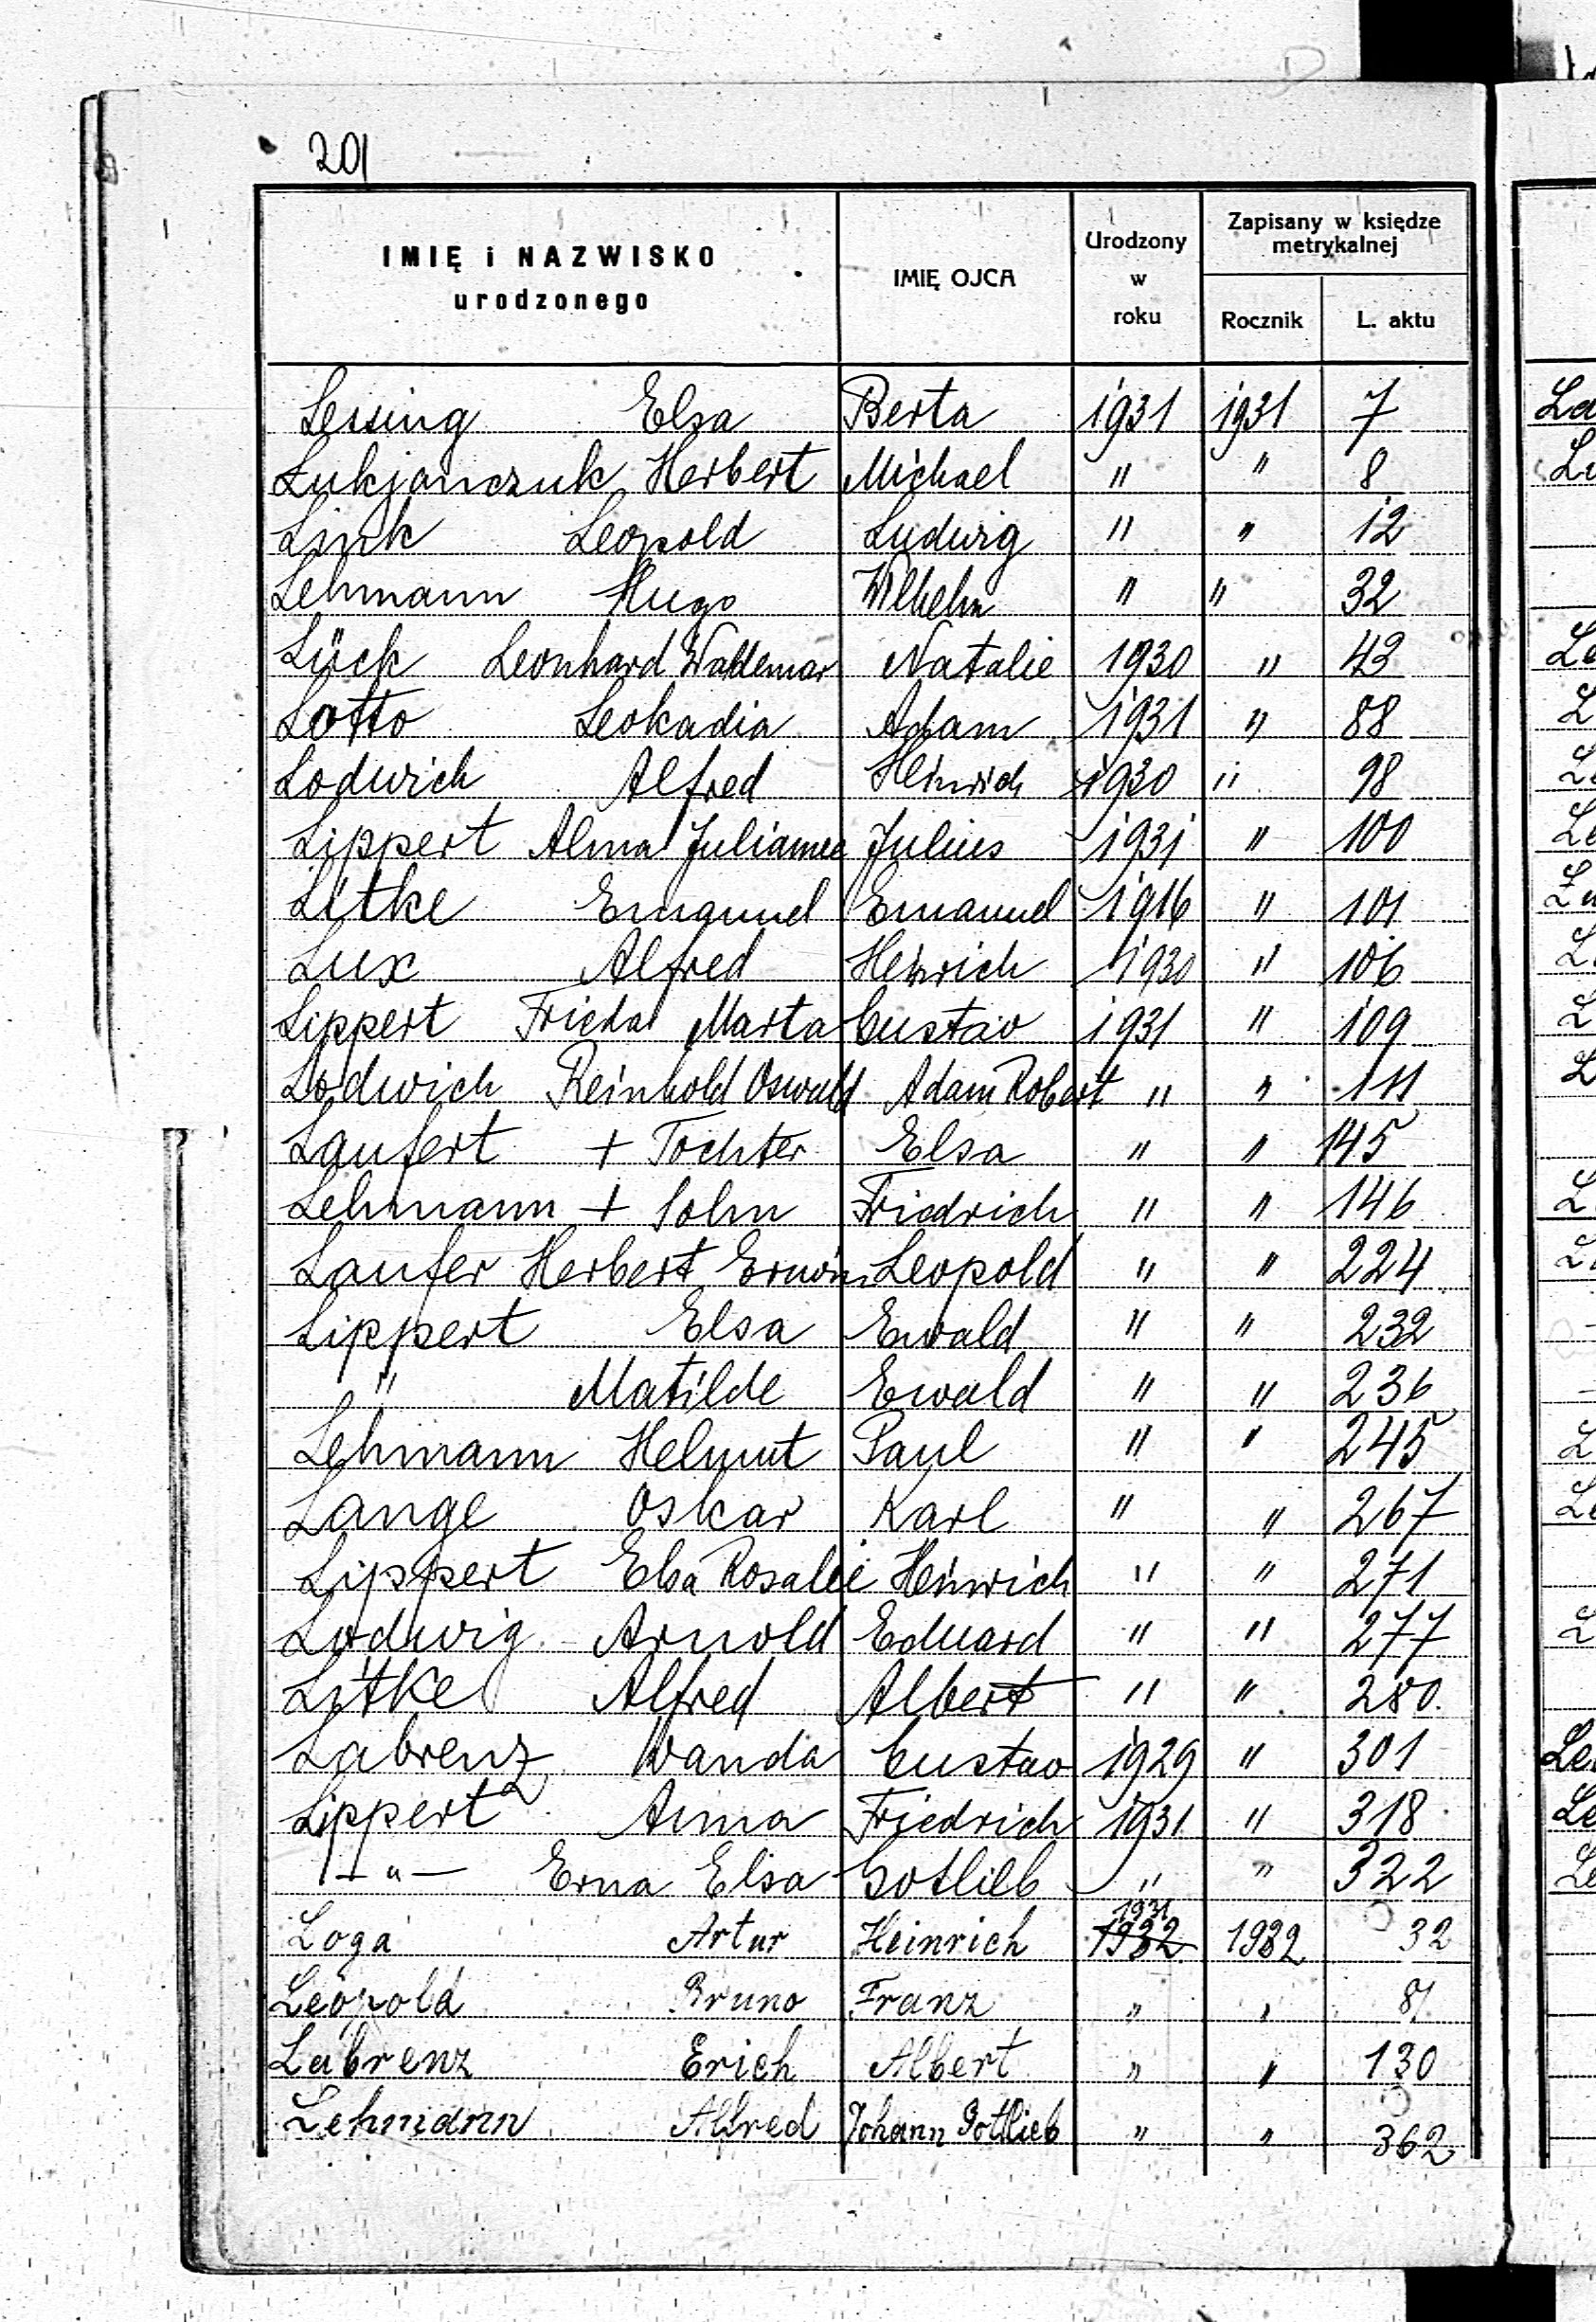 201
IMIĘ i NAZWISKO urodzonego IMIĘ OJCA Urodzony w roku Zapisany w księdze metrykalnej Rocznik L. aktu
Lessing Elsa Berta 1931 1931 7
Lukjanczuk Herbert Michael " " 8
Link Leopold Ludwig " " 12
Lehmann Hugo Wilhelm " " 32
Lück Leonhard Waldemar Natalie 1930 " 43
Lotto Leokadia Adam 1931 " 88
Lodwich Alfred Heinrich 1930 " 98
Lippert Alma Julianne Julius 1931 " 100
Litke Emanuel Emanuel 1916 " 101
Lux Alfred Heinrich 1930 " 106
Lippert Frieda Marta Gustav 1931 " 109
Lodwich Reinhold Oswald Adam Robert " " 111
Laufert + Tochter Elsa " " 145
Lehmann + Sohn Friedrich " " 146
Laufer Herbert Erwin Leopold " " 224
Lippert Elsa Ewald " " 232
" Matilde Ewald " " 236
Lehmann Helmut Paul " " 245
Lange Oskar Karl " " 267
Lippert Elsa Rosalie Heinrich " " 271
Lodwig Arnold Eduard " " 277
Litke Alfred Albert " " 280
Labrenz Wanda Gustav 1929 " 301
Lippert Anna Friedrich 1931 " 318
— " — Erna Elsa Gotlieb " " 322
1931
Loga Artur Heinrich 1932 1932 32
Leopold Bruno Franz " "
Labrenz Erich Albert " " 130
Lehmann Alfred Johann Gottlieb " " 362